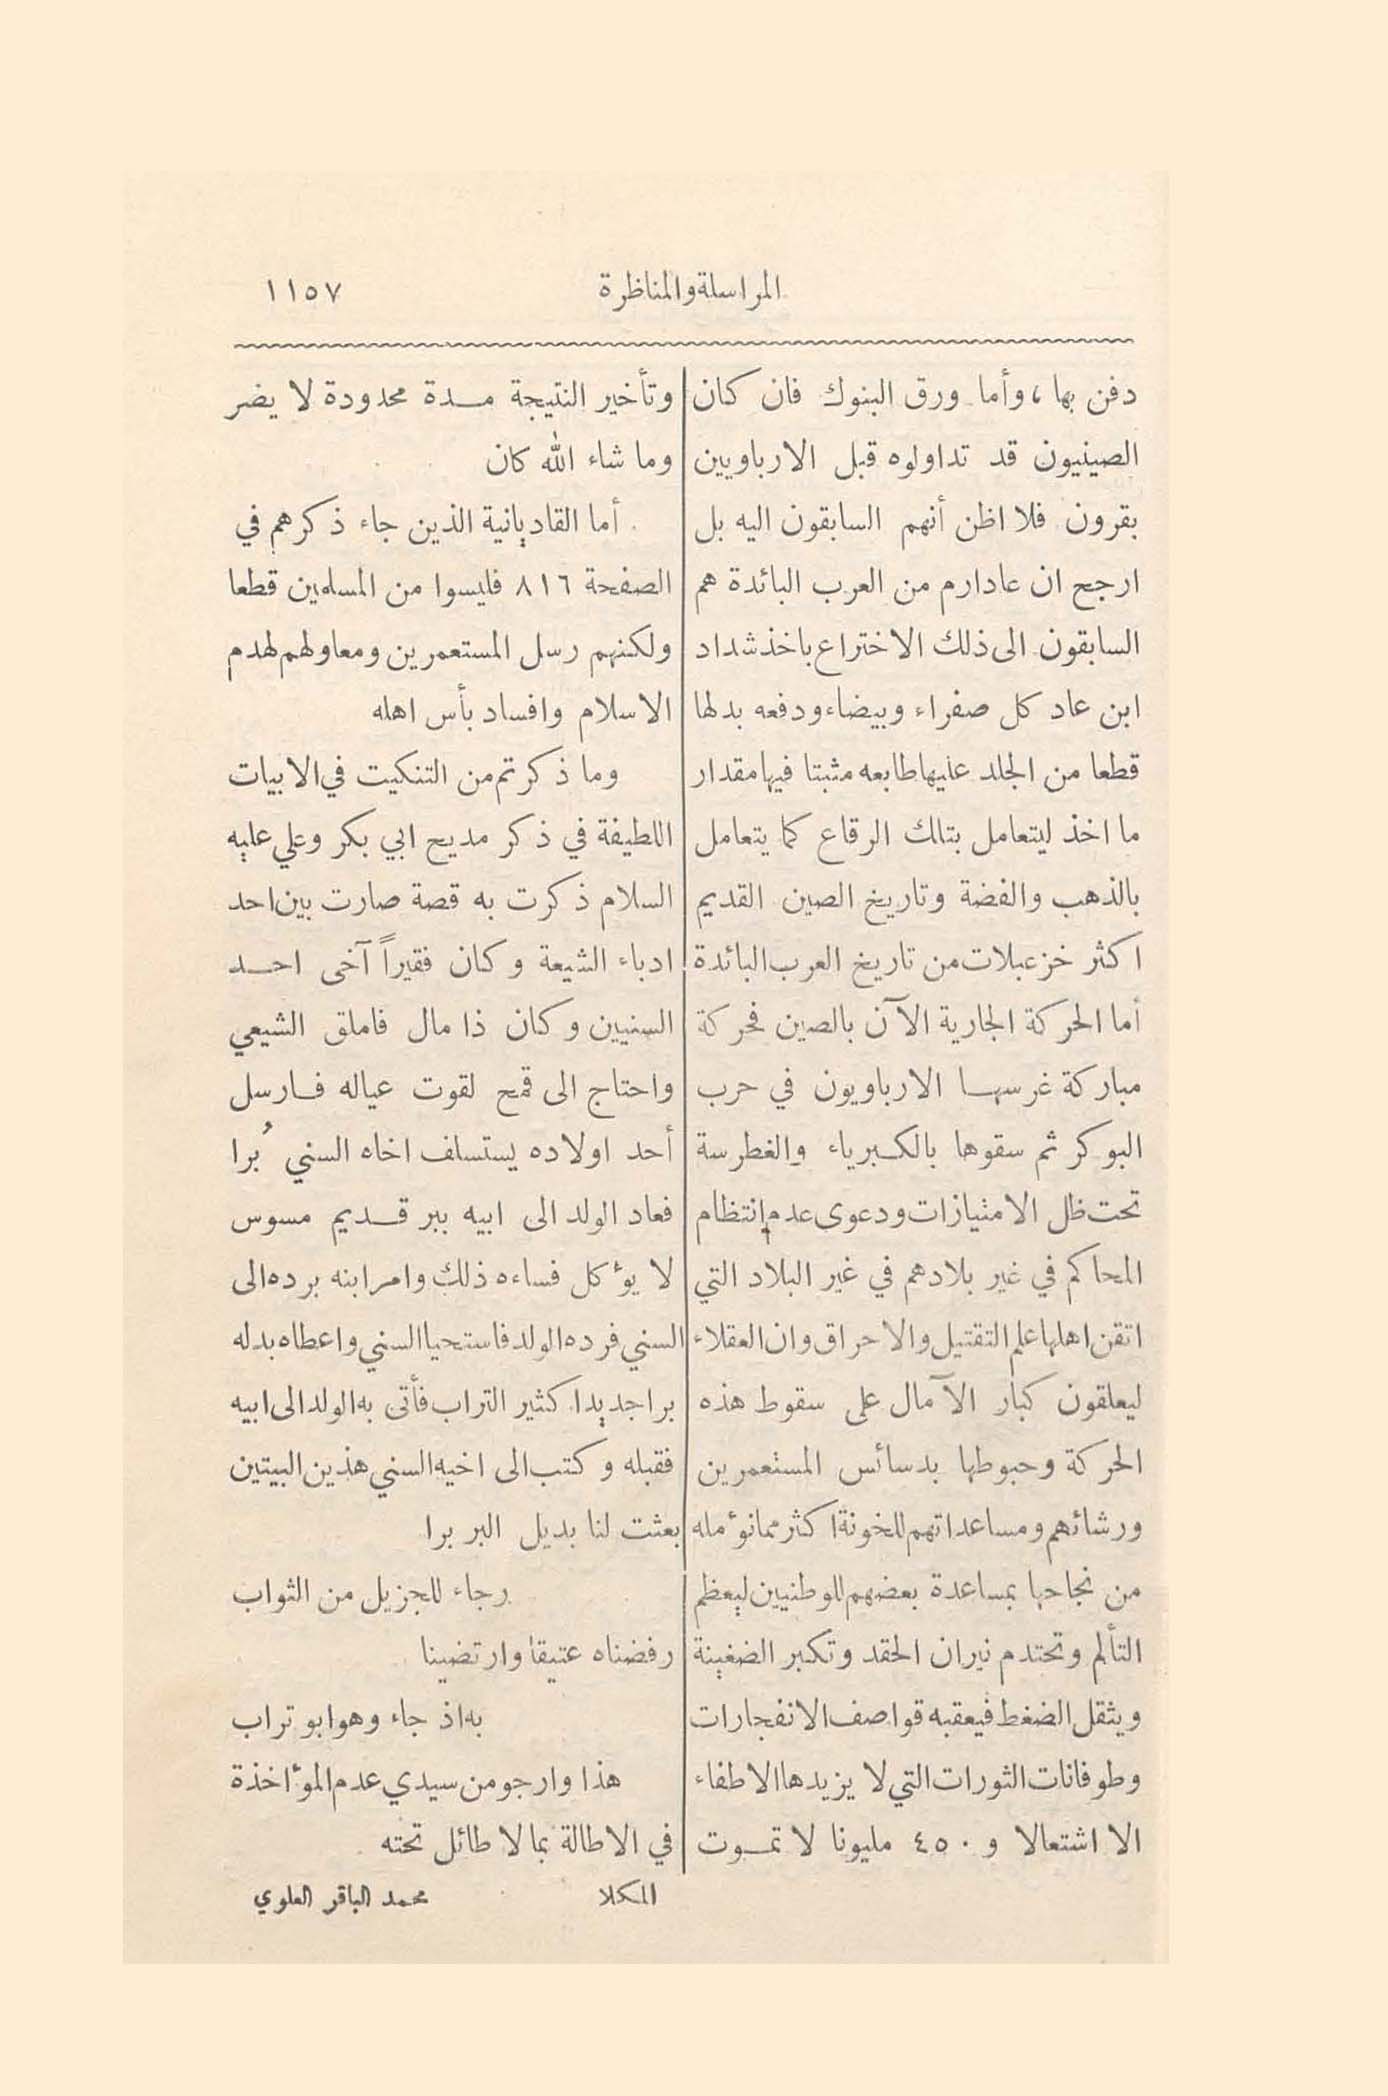 المراسلة والمناظرة
١١٥٧
دفن بها، وأما ورق البنوك فان كان
الصينيون قد تداولوه قبل الارباويين
بقرون فلا اظن أنهم السابقون اليه بل
ارجح ان عادارم من العرب البائدة هم
السابقون الى ذلك الاختراع باخذ شداد
ابن عاد كل صفراء وبيضاء ودفعه بدلها
قطعا من الجلد عليها طابعه مثبتا فيها مقدار
ما اخذ ليتعامل بتلك الرقاع كما يتعامل
بالذهب والفضة وتاريخ الصين القديم
اكثر خزعبلات من تاريخ العرب البائدة
أما الحركة الجارية الآن بالصين فحركة
مباركة غرسها الارباويون في حرب
البوكر ثم سقوها بالكبرياء والغطرسة
تحت ظل الامتيازات ودعوى عدم انتظام
المحاكم في غير بلادهم في غير البلاد التي
اتقن اهلها علم التقتيل والاحراق وان العقلاء
ليعلقون كبار الآمال على سقوط هذه
الحركة وحبوطها بدسائس المستعمرين
ورشائهم ومساعداتهم للخونة اكثر مما نؤمله
من نجاحها بمساعدة بعضهم للوطنيين ليعظم
التألم وتحتدم نيران الحقد وتكبر الضغينة
ويثقل الضغط فيعقبه قواصف الانفجارات
وطوفانات الثورات التي لا يزيدها الاطفاء
الا اشتعالا و ٤٥٠ مليونا لا تموت
وتأخير النتيجة مدة محدودة لا يضر
وما شاء الله كان
أما القاديانية الذين جاء ذكرهم في
الصفحة ٨١٦ فليسوا من المسلمين قطعا
ولكنهم رسل المستعمرين ومعاولهم لهدم
الاسلام وافساد بأس اهله
وما ذكرتم من التنكيت في الابيات
اللطيفة في ذكر مديح ابي بكر وعلي عليه
السلام ذكرت به قصة صارت بين احد
ادباء الشيعة وكان فقيراً آخى احد
السنيين وكان ذا مال فاملق الشيعي
واحتاج الى قمح لقوت عياله فارسل
أحد اولاده يستسلف اخاه السني بُرا
فعاد الولد الى ابيه ببر قديم مسوس
لا يؤكل فساءه ذلك وامر ابنه برده الى
السني فرده الولد فاستحيا السني واعطاه بدله
برا جديدا كثير التراب فأتى به الولد الى ابيه
فقبله وكتب الى اخيه السني هذين البيتين
بعثت لنا بديل البر برا
رجاء للجزيل من الثواب
رفضناه عتيقا وارتضينا
به اذ جاء وهو ابو تراب
هذا وارجو من سيدي عدم المؤاخذة
في الاطالة بما لا طائل تحته
المكلا
محمد الباقر العلوي